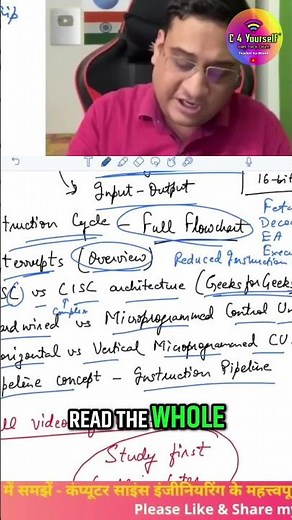 C 4 Yourself
Input - Output
16-bit
struction Cycle - Full Flowchart
Fetc
Decod
EA
Execu
terrupts (Overview)
Reduced Instruction
SC vs CISC architecture (Geeks for Geeks
Complex
ardwired vs Microprogrammed Control Un
orizontal vs Vertical Microprogrammed CU
peline concept - Instruction Pipeline
ll video
READ THE WHOLE
Study first
में समझें - कंप्यूटर साइंस इंजीनियरिंग के महत्त्वपू
Please Like & Share my